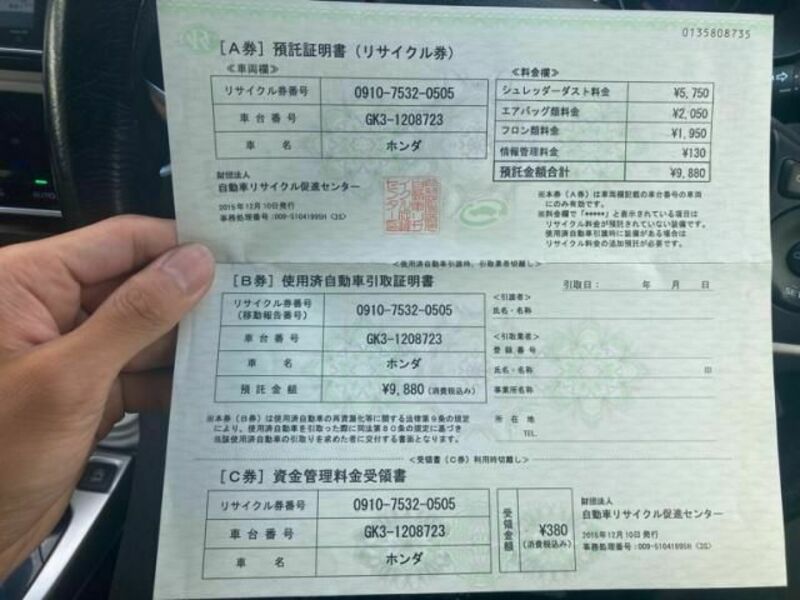 0135808735
[A券] 預託証明書（リサイクル券）
≪車両欄≫
リサイクル券番号 0910-7532-0505
車台番号 GK3-1208723
車名 ホンダ
≪料金欄≫
シュレッダーダスト料金 ¥5,750
エアバッグ類料金 ¥2,050
フロン類料金 ¥1,950
情報管理料金 ¥130
預託金額合計 ¥9,880
財団法人
自動車リサイクル促進センター
2015年12月10日発行
事務処理番号:009-51041995H (2S)
※本券（A券）は車両欄記載の車台番号の車両
にのみ有効です。
※料金欄で「*****」と表示されている項目は
リサイクル料金が預託されていない装備です。
使用済自動車引渡時に装備がある場合は
リサイクル料金の追加預託が必要です。
＜使用済自動車引渡時、引取業者切離し＞
[B券] 使用済自動車引取証明書
引取日： 年 月 日
リサイクル券番号
(移動報告番号) 0910-7532-0505
車台番号 GK3-1208723
車名 ホンダ
預託金額 ¥9,880 (消費税込み)
＜引渡者＞
氏名・名称
＜引取業者＞
登録番号
氏名・名称 印
事業所名称
所在地
TEL.
※本券（B券）は使用済自動車の再資源化等に関する法律第9条の規定
により、使用済自動車を引取った際に同法第80条の規定に基づき
当該使用済自動車の引取りを求めた者に交付する書面となります。
＜受領書（C券）利用時切離し＞
[C券] 資金管理料金受領書
リサイクル券番号 0910-7532-0505
車台番号 GK3-1208723
車名 ホンダ
受領金額 ¥380
(消費税込み)
財団法人
自動車リサイクル促進センター
2015年12月10日発行
事務処理番号:009-51041995H (2S)